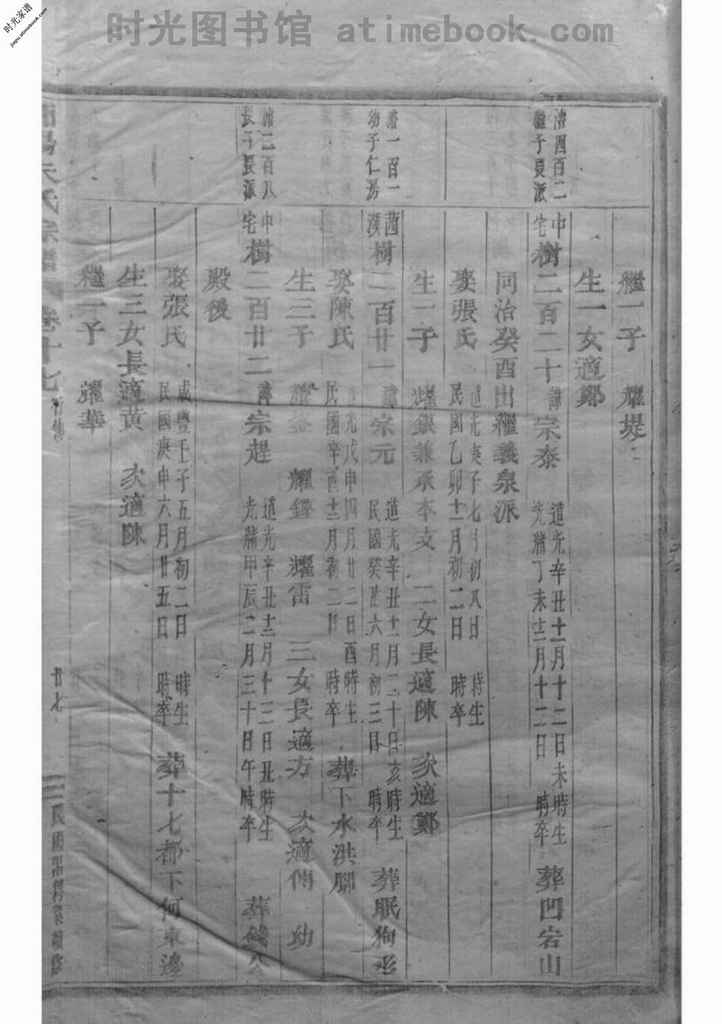 时光图书馆 atimebook.com
时光家谱
jiapu.atimebook.com
繼一子 耀堤
生一女適鄭
四百二
繼子夏派
中宅樹二百二十諱宗泰 道光辛丑十一月十二日未時生 光緒丁未十二月十二日 時卒 葬凹岩山
同治癸酉出繼義泉派
娶張氏 道光庚子七月初八日 時生 民國乙卯十一月初二日 時卒
生一子 耀 兼承本支 二女長適陳 次適鄭
一百一
幼子仁
樹二百廿一諱宗元 道光辛丑十一月二十日亥時生 民國癸丑六月初三日 時卒 葬眠狗
娶陳氏 道光戊申四月廿二日酉時生 民國辛酉十二月初二日 時卒 葬下水洪腳
生三子 耀 耀 耀雷 三女長適方 次適傅 幼
二百八
長子長派
中宅樹二百廿二諱宗趕 道光辛丑十二月十三日丑時生 光緒甲辰二月三十日午時卒 葬
殿後
娶張氏 咸豐壬子五月初二日 時生 民國庚申六月廿五日 時卒 葬十七都下何東邊
生三女長適黃 次適陳
繼一子 耀華
氏宗譜 卷十七 廿七 民國